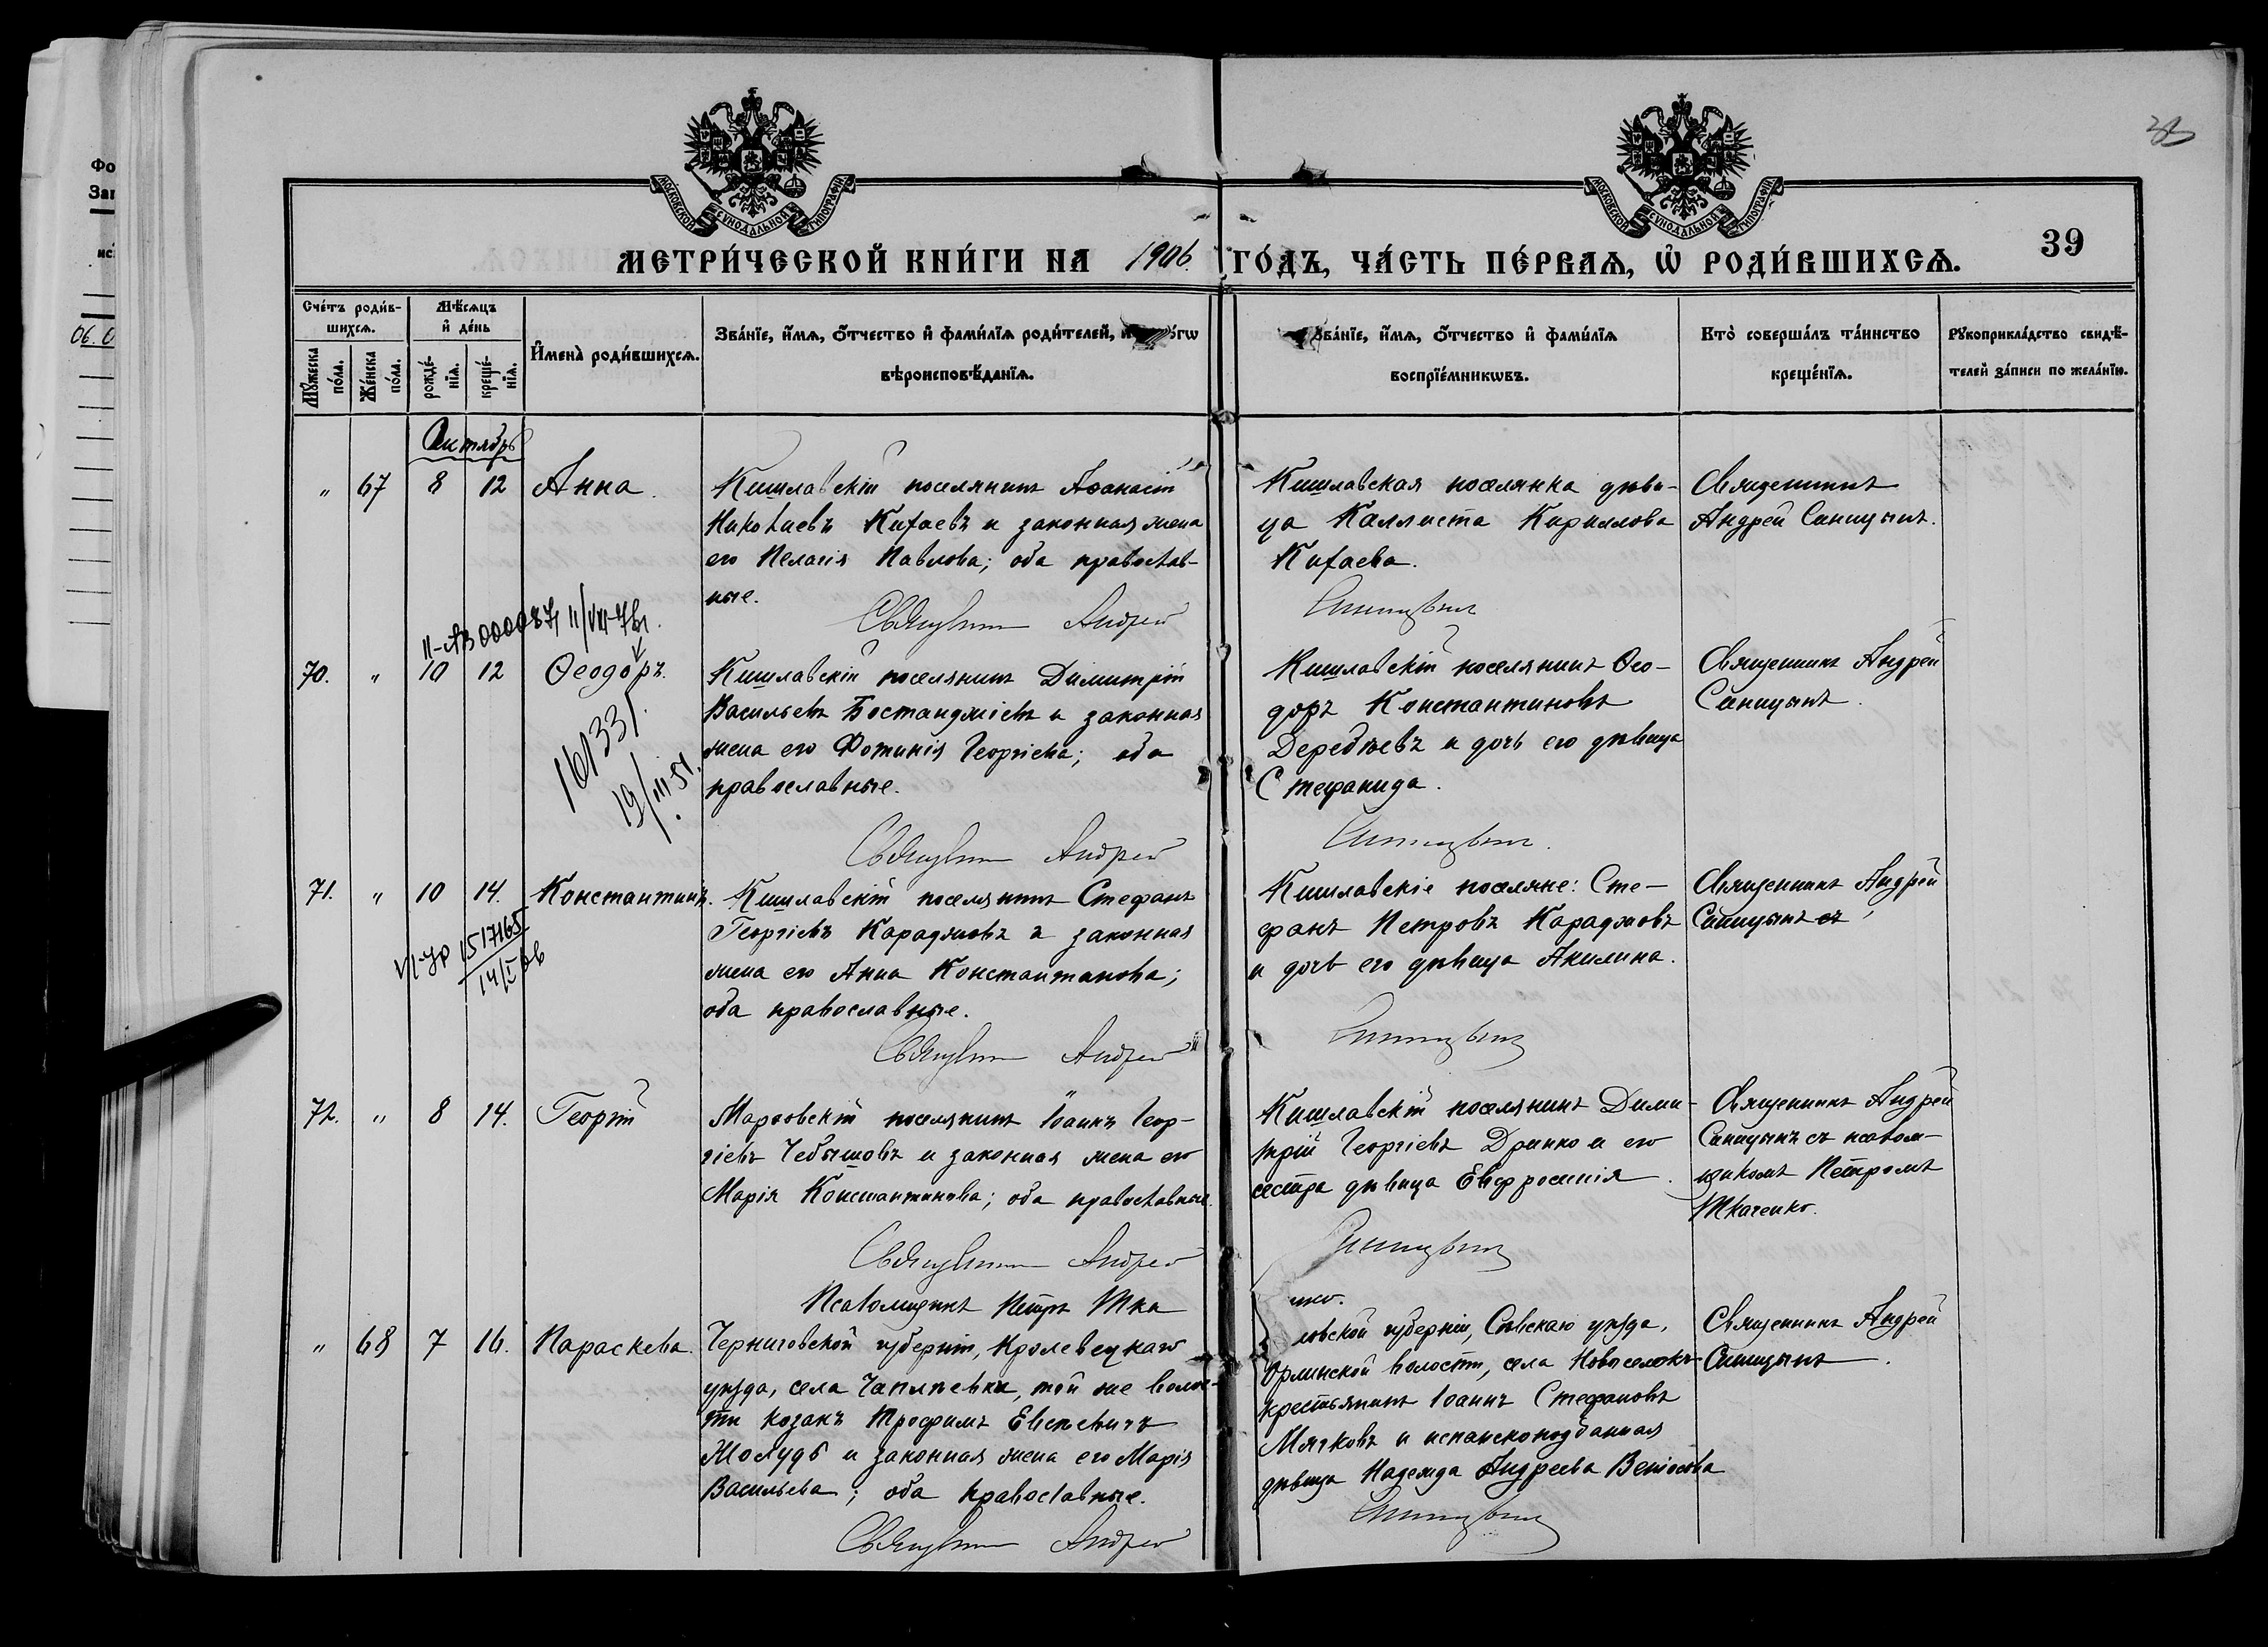 39
МОСКОВСКОЙ СѴНОДАЛЬНОЙ ТИПОГРАФІИ
МОСКОВСКОЙ СѴНОДАЛЬНОЙ ТИПОГРАФІИ
МЕТРИ́ЧЕСКОЙ КНИ́ГИ НА 1906. ГО́ДЪ, ЧА́СТЬ ПЕ́РВАѦ, Ѡ҆ РОДИ́ВШИХСѦ.
Сче́тъ роди́в-
шихсѧ.
Мꙋ́жеска по́ла.
Же́нска по́ла.
Мѣ́сѧцъ
и҆ де́нь
рожде́-
нїѧ.
креще́-
нїѧ.
И҆мена̀ роди́вшихсѧ.
Зва́нїе, и҆́мѧ, ѻ҆́тчество и҆ фами́лїѧ роди́телей, и҆
вѣроисповѣ́данїѧ.
Зва́нїе, и҆́мѧ, ѻ҆́тчество и҆ фами́лїѧ
воспрїе́мникѡвъ.
Кто̀ соверша́лъ та́инство
креще́нїѧ.
Рꙋкоприкла́дство свидѣ́-
телей за́писи по жела́нїю.
Октябрь
" 67 8 12 Анна.
Кишлавскій поселянинъ Аѳанасій
Николаевъ Китаевъ и законная жена
его Пелагія Павлова; оба православ-
ные.
Священникъ Андрей
Кишлавская поселянка дѣви-
ца Каллиста Кириллова
Китаева.
Синицынъ
Священникъ
Андрей Синицынъ.
70. " 10 12 Ѳеодоръ.
19/III 51.
Кишлавскій поселянинъ Димитрій
Васильевъ Бостанджіевъ и законная
жена его Фотинія Георгіева; оба
православные.
Священникъ Андрей
Кишлавскій поселянинъ Ѳео-
доръ Константиновъ
Деребѣевъ и дочь его дѣвица
Стефанида.
Синицынъ.
Священникъ Андрей
Синицынъ.
71. " 10 14. Константинъ.
Кишлавскій поселянинъ Стефанъ
Георгіевъ Караджовъ и законная
жена его Анна Константинова;
оба православные.
Священникъ Андрей
Кишлавскіе поселяне: Сте-
фанъ Петровъ Караджовъ
и дочь его дѣвица Акилина.
Синицынъ
Священникъ Андрей
Синицынъ съ
72. " 8 14. Георгій
поселянинъ Іоаннъ Геор-
гіевъ Чебышовъ и законная жена его
Марія Константинова; оба православные.
Священникъ Андрей
Псаломщикъ Петръ Тка
Кишлавскій поселянинъ Дими-
трій Георгіевъ Дринко и его
сестра дѣвица Евфросинія.
Синицынъ
Священникъ Андрей
Синицынъ съ псалом-
щикомъ Петромъ
Ткаченко.
" 68 7 16. Параскева.
Черниговской губерніи, Кролевецкаго
уѣзда, села Чаплѣевки, той же волос-
ти козакъ Трофимъ Евсѣевичъ
Жолудь и законная жена его Марія
Васильева; оба православные.
Священникъ Андрей
ловской губерніи, Сѣвскаго уѣзда,
Орлинской волости, села Новоселокъ
крестьянинъ Іоаннъ Стефановъ
Мячковъ и испанскоподданная
дѣвица Надежда Андреева
Синицынъ
Священникъ Андрей
Синицынъ.